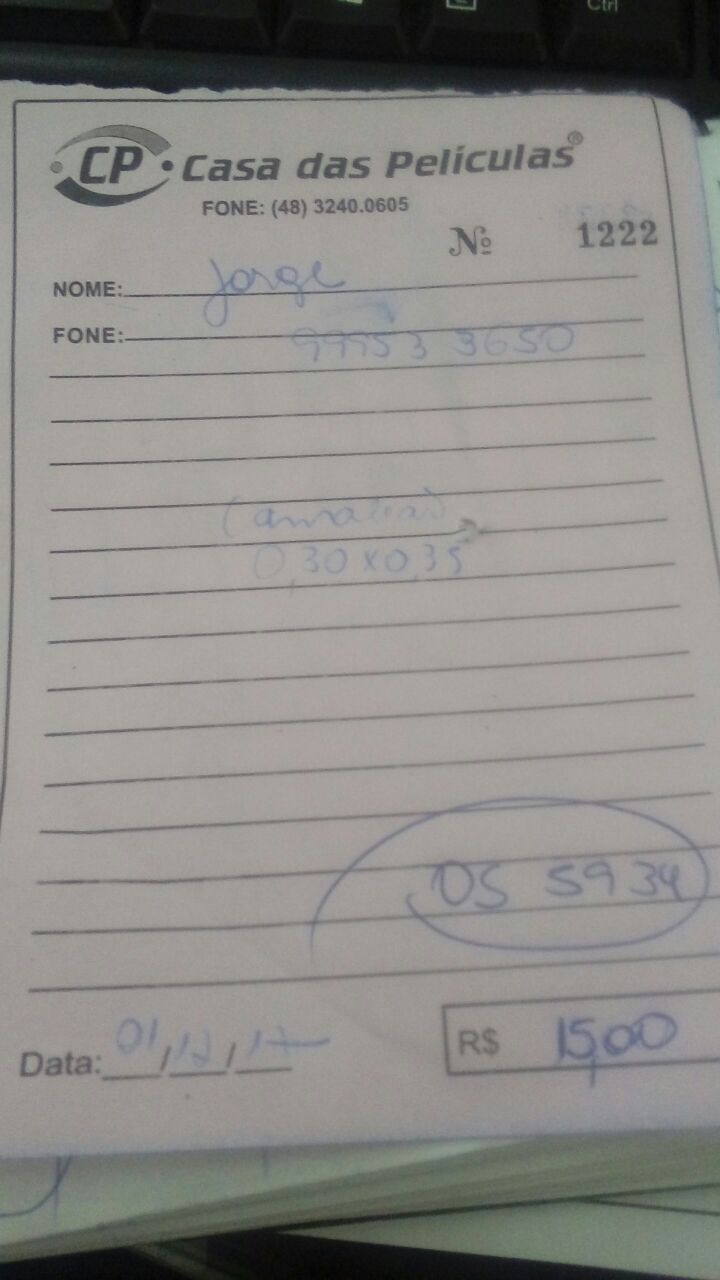 Ctrl
CP Casa das Películas®
FONE: (48) 3240.0605
Nº 1222
NOME: Jorge
FONE: 99953 3650
0,30 x 0,35
OS 5934
Data: 01/12/17
R$ 15,00